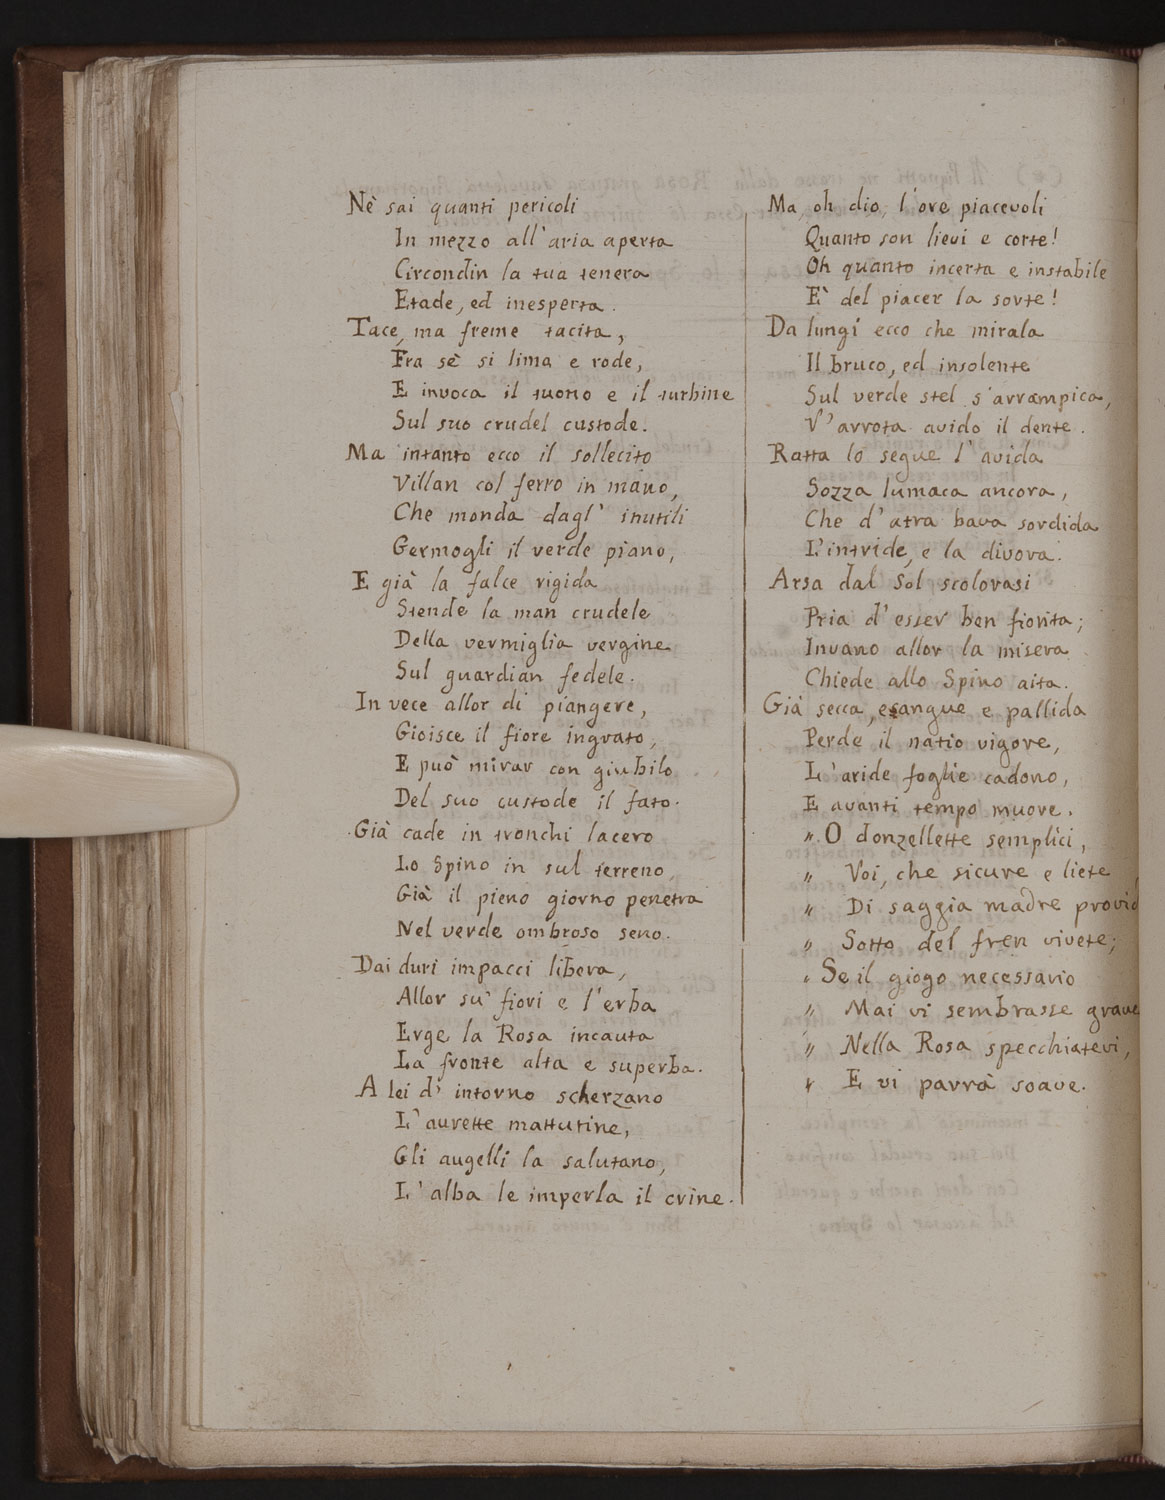 Nè sai quanti pericoli
In mezzo all'aria aperta
Circondin la tua tenera
Etade, ed inesperta.
Tace, ma freme tacita,
Fra sè si lima e rode,
E invoca il tuono e il turbine
Sul suo crudel custode.
Ma intanto ecco il sollecito
Villan col ferro in mano,
Che monda dagl' inutili
Germogli il verde piano,
E già la falce rigida
Stende la man crudele
Della vermiglia vergine
Sul guardian fedele.
In vece allor di piangere,
Gioisce il fiore ingrato,
E può mirar con giubilo
Del suo custode il fato.
Già cade in tronchi lacero
Lo Spino in sul terreno,
Già il pieno giorno penetra
Nel verde ombroso seno.
Dai duri impacci libera,
Allor su' fiori e l'erba
Erge la Rosa incauta
La fronte alta e superba.
A lei d' intorno scherzano
L'aurette mattutine,
Gli augelli la salutano,
L'alba le imperla il crine.
Ma, oh dio, l'ore piacevoli
Quanto son lievi e corte!
Oh quanto incerta e instabile
E' del piacer la sorte!
Da lungi ecco che mirala
Il bruco, ed insolente
Sul verde stel s'arrampica,
V'arrota avido il dente.
Ratta lo segue l'avida
Sozza lumaca ancora,
Che d'atra bava sordida
L'intride, e la divora.
Arsa dal Sol scolorasi
Pria d'esser ben fiorita;
Invano allor la misera
Chiede allo Spino aita.
Già secca, esangue e pallida
Perde il natio vigore,
L'aride foglie cadono,
E avanti tempo muore.
" O donzellette semplici,
" Voi, che sicure e liete
" Di saggia madre provid
" Sotto del fren vivete;
" Se il giogo necessario
" Mai vi sembrasse grave
" Nella Rosa specchiatevi,
" E vi parrà soave.